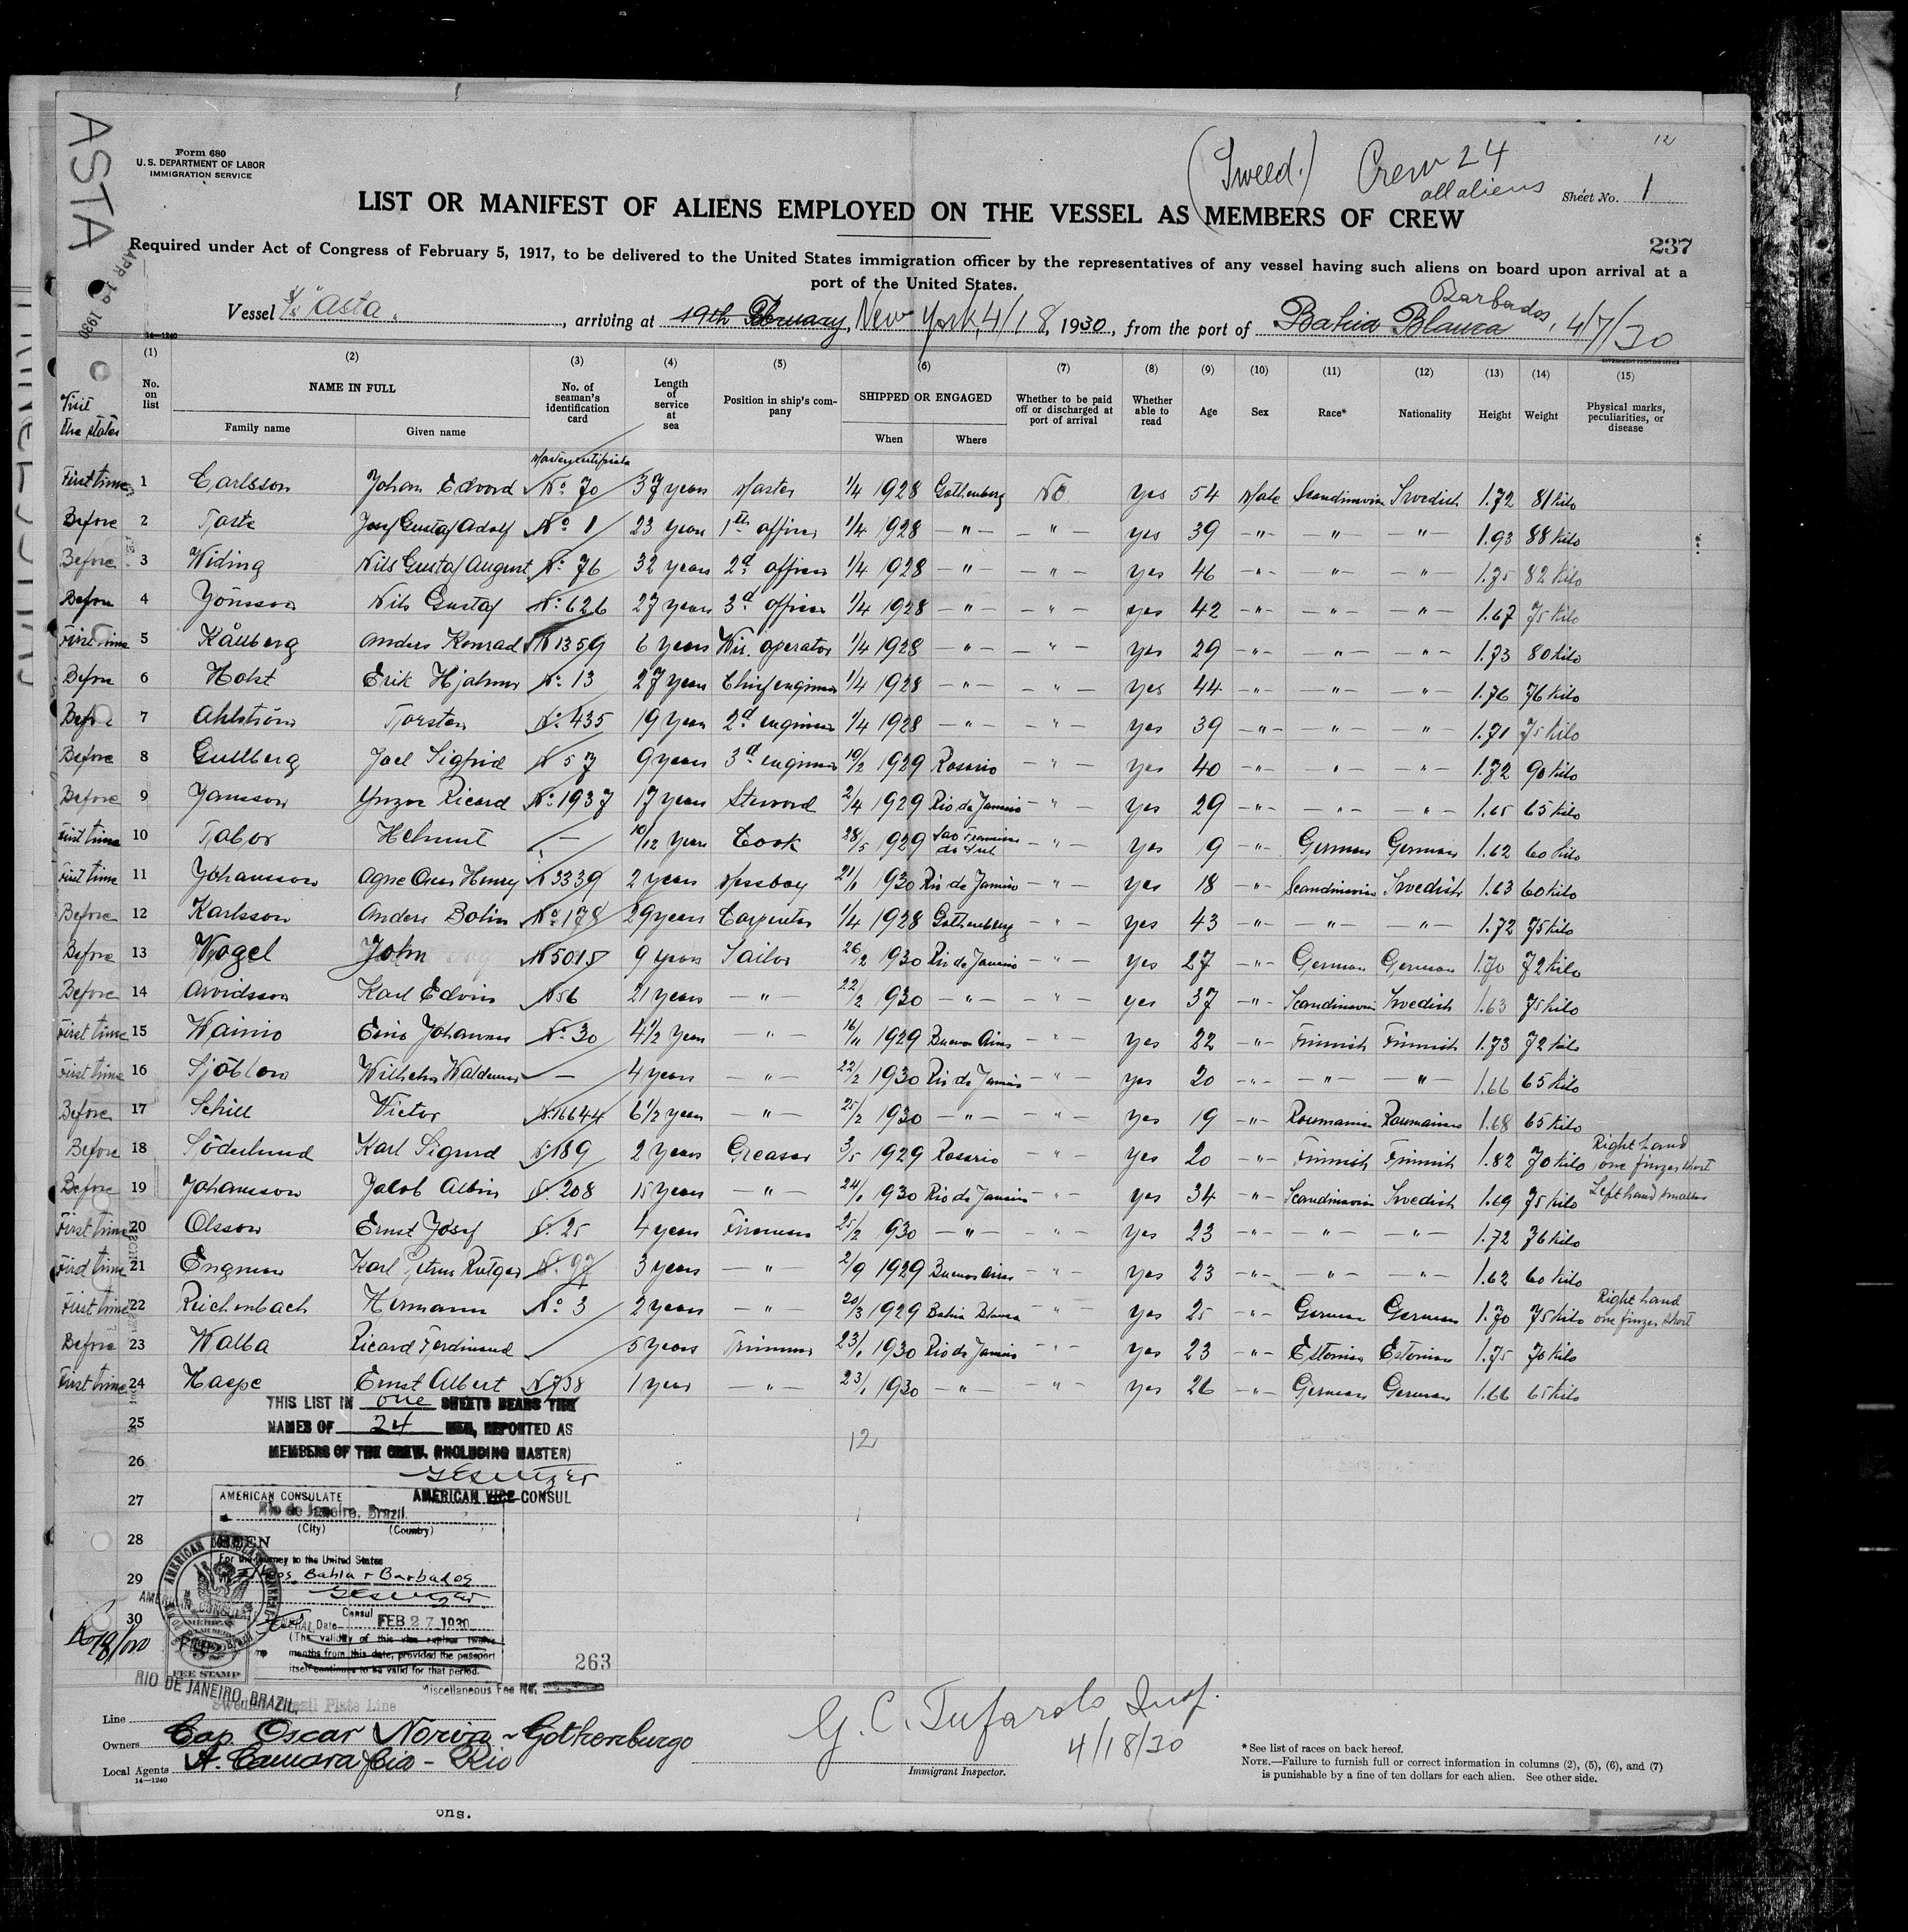 ASTA
APR 19 1930
Form 680
U. S. DEPARTMENT OF LABOR
IMMIGRATION SERVICE
(Swed.) Crew 24
all aliens
12
Sheet No. 1
LIST OR MANIFEST OF ALIENS EMPLOYED ON THE VESSEL AS MEMBERS OF CREW
237
Required under Act of Congress of February 5, 1917, to be delivered to the United States immigration officer by the representatives of any vessel having such aliens on board upon arrival at a
port of the United States.
Barbados, 4/7/30
Vessel S/S "Asta", arriving at 19th February, New York, 4/18, 1930, from the port of Bahia Blanca
14—1240
(1) (2) (3) (4) (5) (6) (7) (8) (9) (10) (11) (12) (13) (14) (15)
Visit the states
No. on list
NAME IN FULL
Family name Given name
No. of seaman's identification card
Length of service at sea
Position in ship's company
SHIPPED OR ENGAGED
When Where
Whether to be paid off or discharged at port of arrival
Whether able to read
Age Sex Race* Nationality Height Weight
Physical marks, peculiarities, or disease
First time 1 Carlsson Johan Edvard No. 70 37 years Master 1/4 1928 Gothenberg No Yes 54 Male Scandinavian Swedish 1.72 81 kilo
Before 2 Gustaf Adolf No 1 23 years 1th officer 1/4 1928 —"— —"— yes 39 —"— —"— —"— 1.93 88 kilo
Before 3 Widing Nils Gustaf August No. 76 32 years 2d officer 1/4 1928 —"— —"— yes 46 —"— —"— —"— 1.75 82 kilo
Before 4 Jönsson Nils Gustaf No. 626 27 years 3d officer 1/4 1928 —"— —"— yes 42 —"— —"— —"— 1.67 75 kilo
First time 5 Kållberg Anders Konrad N 1359 6 years Wir. operator 1/4 1928 —"— —"— yes 29 —"— —"— —"— 1.73 80 kilo
Before 6 Holst Erik Hjalmar No. 13 27 years Chief engineer 1/4 1928 —"— —"— yes 44 —"— —"— —"— 1.76 76 kilo
Before 7 Ahlström Torsten No. 435 19 years 2d engineer 1/4 1928 —"— —"— yes 39 —"— —"— —"— 1.71 75 kilo
Before 8 Gullberg Joel Sigfrid N 57 9 years 3d engineer 19/2 1929 Rosario —"— yes 40 —"— —"— —"— 1.72 90 kilo
Before 9 Jansson Yngve Ricard No. 1937 17 years Steward 2/4 1929 Rio de Janeiro —"— yes 29 —"— —"— —"— 1.65 65 kilo
First time 10 Tabor Helmut — 10/12 year Cook 28/5 1929 Sao Francisco do Sul —"— yes 9 —"— German German 1.62 60 kilo
First time 11 Johansson Agne Oscar Henry N 3339 2 years Messboy 21/1 1930 Rio de Janeiro —"— yes 18 —"— Scandinavian Swedish 1.63 60 kilo
Before 12 Karlsson Anders Bolin No. 178 29 years Carpenter 1/4 1928 Gothenberg —"— yes 43 —"— —"— —"— 1.72 75 kilo
Before 13 Wogel John N 5015 9 years Sailor 26/2 1930 Rio de Janeiro —"— yes 27 —"— German German 1.70 72 kilo
Before 14 Arvidsson Karl Edvin N 56 21 years —"— 22/2 1930 —"— —"— yes 37 —"— Scandinavian Swedish 1.63 75 kilo
First time 15 Wainio Eino Johannes No. 30 4 1/2 year —"— 16/11 1929 Buenos Aires —"— yes 22 —"— Finnish Finnish 1.73 72 kilo
First time 16 Sjöblom Wilhelm Waldemar — 4 year —"— 22/2 1930 Rio de Janeiro —"— yes 20 —"— —"— —"— 1.66 65 kilo
Before 17 Schill Victor N. 16644 6 1/2 year —"— 25/2 1930 —"— —"— yes 19 —"— Roumanian Roumanian 1.68 65 kilo
Before 18 Söderlund Karl Sigurd N 189 2 years Greaser 3/5 1929 Rosario —"— yes 20 —"— Finnish Finnish 1.82 70 kilo Right hand one finger short
Before 19 Johansson Jacob Albin N. 208 15 years —"— 24/1 1930 Rio de Janeiro —"— yes 34 —"— Scandinavian Swedish 1.69 75 kilo Left hand smaller
First time 20 Olsson Ernst Josef N. 25 4 years Fireman 25/2 1930 —"— —"— yes 23 —"— —"— —"— 1.72 76 kilo
First time 21 Engman Karl Petrus Rutger N. 97 3 years —"— 2/9 1929 Buenos Aires —"— yes 23 —"— —"— —"— 1.62 60 kilo
First time 22 Reichenbach Hermann No. 3 2 years —"— 20/3 1929 Bahia Blanca —"— yes 25 —"— German German 1.70 75 kilo Right hand one finger short
Before 23 Walba Ricard Ferdinand 5 years Trimmer 23/1 1930 Rio de Janeiro —"— yes 23 —"— Estonian Estonian 1.75 70 kilo
First time 24 Haepe Ernst Albert N 738 1 year —"— 23/1 1930 —"— —"— yes 26 —"— German German 1.66 65 kilo
THIS LIST IN one SHEETS BEARS THE
25
NAMES OF 24 MEN, REPORTED AS
12
MEMBERS OF THE CREW. (INCLUDING MASTER)
26
AMERICAN VICE CONSUL
27
AMERICAN CONSULATE
Rio de Janeiro, Brazil.
(City) (Country)
28
SEEN
For the journey to the United States
29
Bahia & Barbados
30
Consul
Date FEB 27 1930
(The validity of this visa expires twelve
months from this date, provided the passport
itself continues to be valid for that period.
263
FEE STAMP
RIO DE JANEIRO, BRAZIL
Miscellaneous Fee No.
Line Sweden Brazil Plate Line
Owners Cap. Oscar Norin - Gothenburgo
Local Agents A. Camara Cia - Rio
14—1240
G. C. Tufarolo Insp.
4/18/30
Immigrant Inspector.
* See list of races on back hereof.
NOTE.—Failure to furnish full or correct information in columns (2), (5), (6), and (7)
is punishable by a fine of ten dollars for each alien. See other side.
ons.